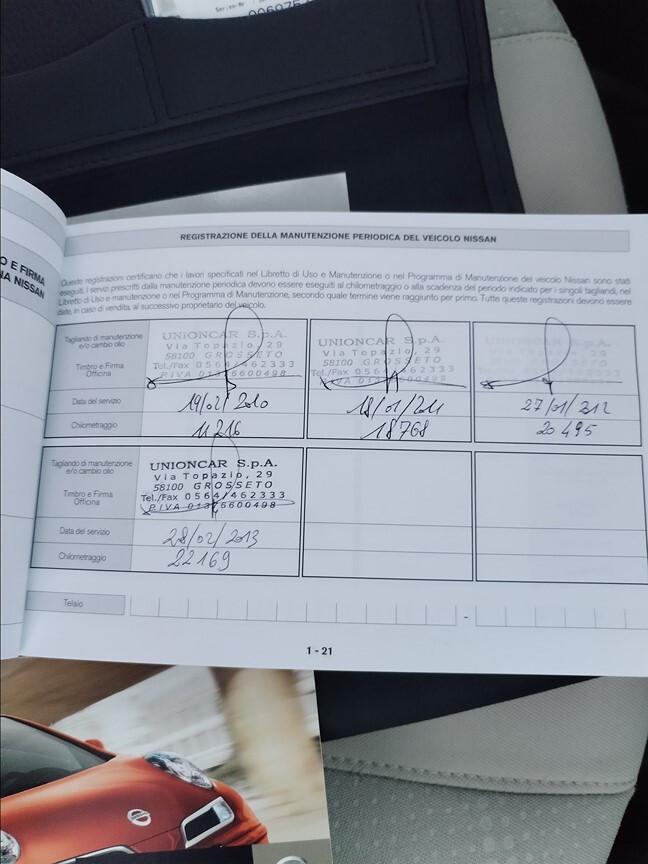 Serien-Nr
O E FIRMA
NA NISSAN
REGISTRAZIONE DELLA MANUTENZIONE PERIODICA DEL VEICOLO NISSAN
Queste registrazioni certificano che i lavori specificati nel Libretto di Uso e Manutenzione o nel Programma di Manutenzione del veicolo Nissan sono stati
eseguiti. I servizi prescritti dalla manutenzione periodica devono essere eseguiti al chilometraggio o alla scadenza del periodo indicato per i singoli tagliandi, nel
Libretto di Uso e manutenzione o nel Programma di Manutenzione, secondo quale termine viene raggiunto per primo. Tutte queste registrazioni devono essere
date, in caso di vendita, al successivo proprietario del veicolo.
Tagliando di manutenzione
e/o cambio olio
Timbro e Firma
Officina
UNIONCAR S.p.A.
Via Topazio, 29
58100 GROSSETO
Tel./Fax 0564/462333
P.IVA 01376600498
UNIONCAR S.p.A.
Via Topazio, 29
58100 GROSSETO
Tel./Fax 0564/462333
Data del servizio
19/02/2010
18/01/2011
27/01/212
Chilometraggio
11216
18768
20495
Tagliando di manutenzione
e/o cambio olio
Timbro e Firma
Officina
UNIONCAR S.p.A.
Via Topazio, 29
58100 GROSSETO
Tel./Fax 0564/462333
P.IVA 01376600498
Data del servizio
28/02/2013
Chilometraggio
22169
Telaio
-
1 - 21